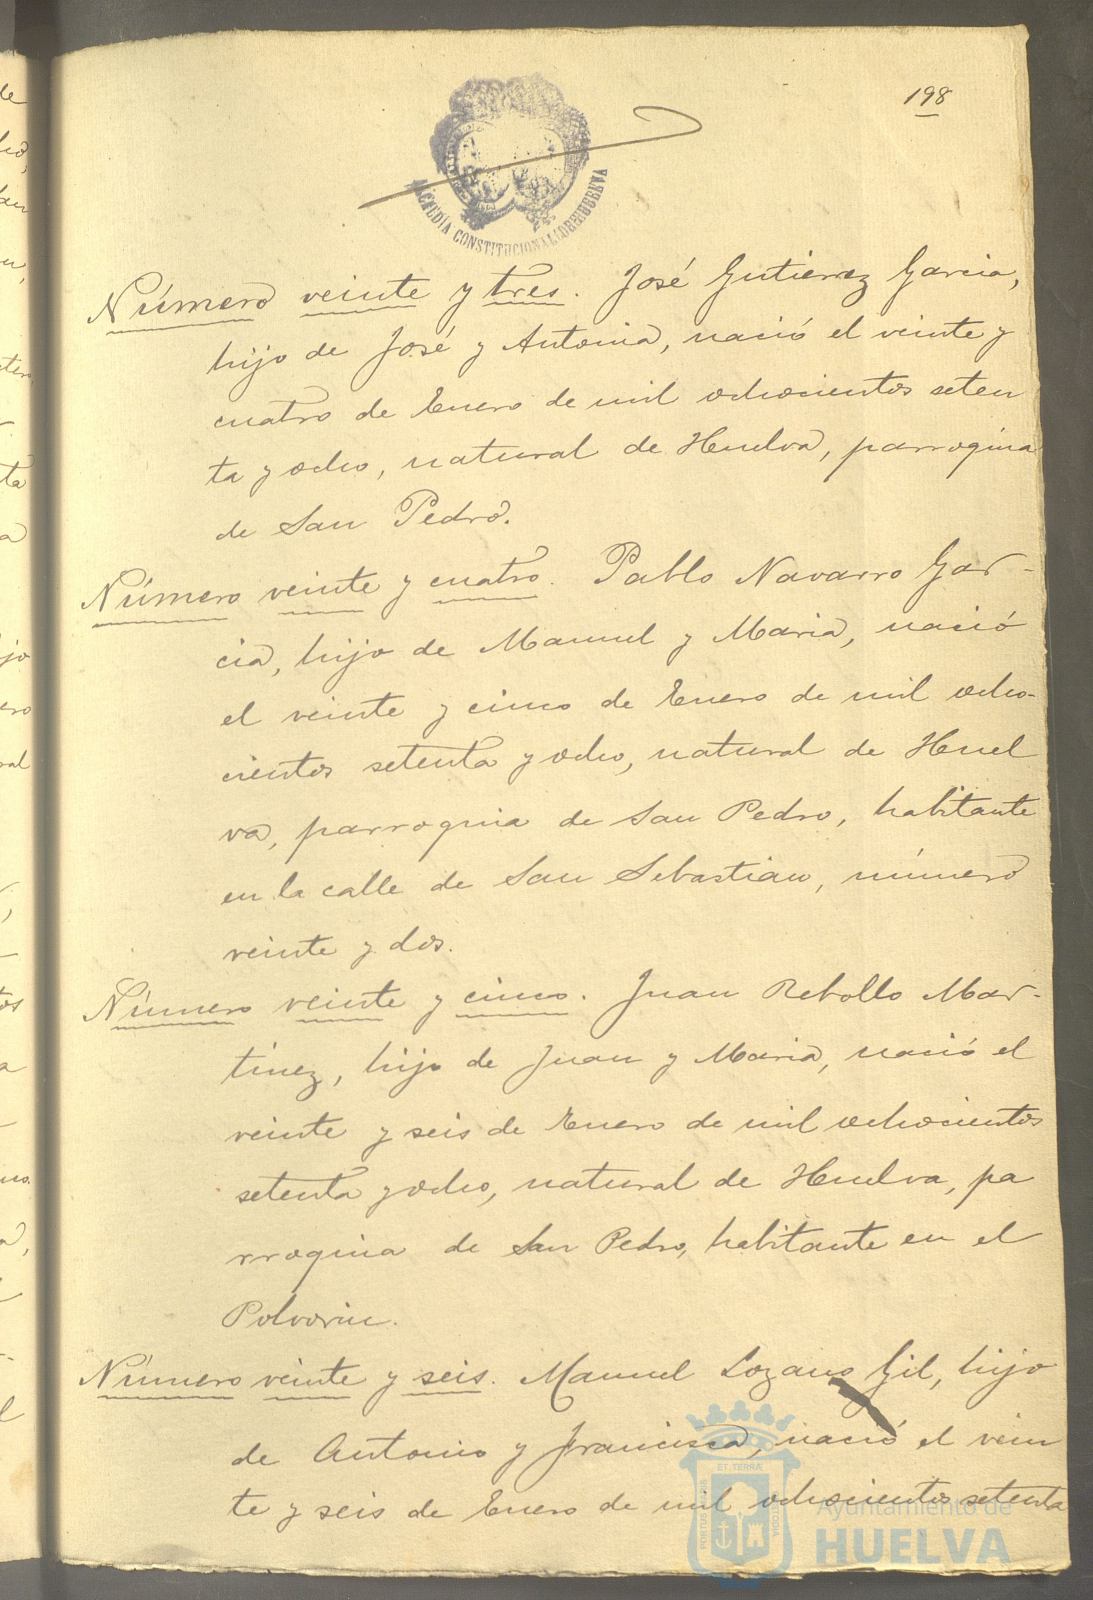 198
ALCALDIA CONSTITUCIONAL DE HUELVA
Número veinte y tres. José Gutierrez Garcia,
hijo de José y Antonia, nació el veinte y
cuatro de Enero de mil ochocientos seten
ta y ocho, natural de Huelva, parroquia
de San Pedro.
Número veinte y cuatro. Pablo Navarro Gar-
cia, hijo de Manuel y Maria, nació
el veinte y cinco de Enero de mil ocho-
cientos setenta y ocho, natural de Huel
va, parroquia de San Pedro, habitante
en la calle de San Sebastian, número
veinte y dos.
Número veinte y cinco. Juan Rebollo Mar-
tinez, hijo de Juan y Maria, nació el
veinte y seis de Enero de mil ochocientos
setenta y ocho, natural de Huelva, pa
rroquia de San Pedro, habitante en el
Polvorin.
Número veinte y seis. Manuel Lozano Gil, hijo
de Antonio y Francisca, nació el vein
te y seis de Enero de mil ochocientos setenta
PORTUS ET TERRÆ CUSTODIA
Ayuntamiento de
HUELVA